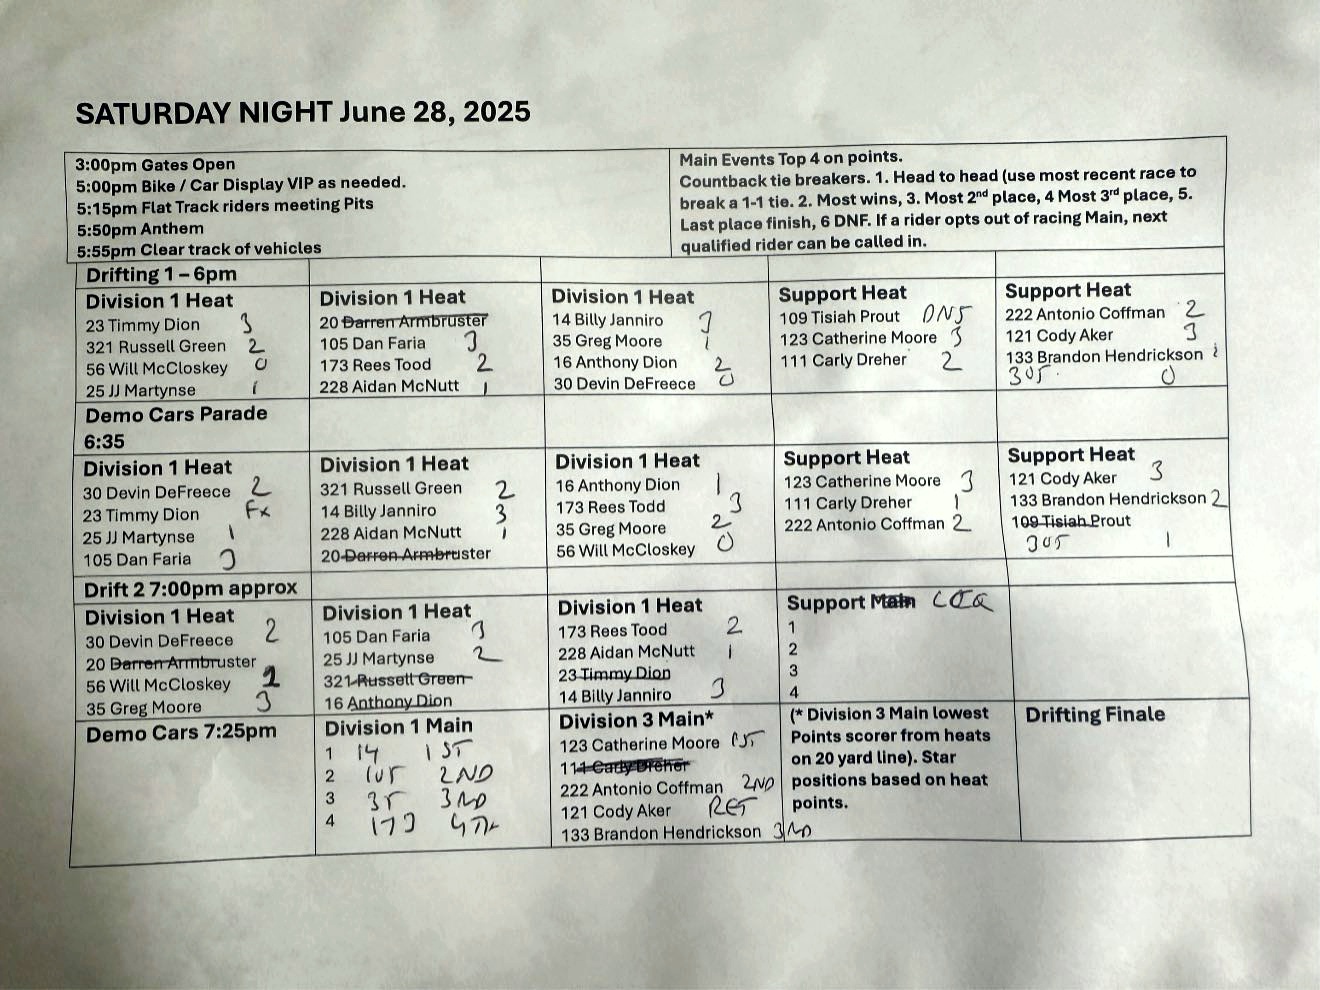 SATURDAY NIGHT June 28, 2025
3:00pm Gates Open
5:00pm Bike / Car Display VIP as needed.
5:15pm Flat Track riders meeting Pits
5:50pm Anthem
5:55pm Clear track of vehicles
Main Events Top 4 on points.
Countback tie breakers. 1. Head to head (use most recent race to
break a 1-1 tie. 2. Most wins, 3. Most 2nd place, 4 Most 3rd place, 5.
Last place finish, 6 DNF. If a rider opts out of racing Main, next
qualified rider can be called in.
Drifting 1 – 6pm
Division 1 Heat
23 Timmy Dion 3
321 Russell Green 2
56 Will McCloskey 0
25 JJ Martynse 1
Division 1 Heat
20 Darren Armbruster
105 Dan Faria 3
173 Rees Tood 2
228 Aidan McNutt 1
Division 1 Heat
14 Billy Janniro 3
35 Greg Moore 1
16 Anthony Dion 2
30 Devin DeFreece 0
Support Heat
109 Tisiah Prout DNS
123 Catherine Moore 3
111 Carly Dreher 2
Support Heat
222 Antonio Coffman 2
121 Cody Aker 3
133 Brandon Hendrickson 1
305 0
Demo Cars Parade
6:35
Division 1 Heat
30 Devin DeFreece 2
23 Timmy Dion Fx
25 JJ Martynse 1
105 Dan Faria 3
Division 1 Heat
321 Russell Green 2
14 Billy Janniro 3
228 Aidan McNutt 1
20 Darren Armbruster
Division 1 Heat
16 Anthony Dion 1
173 Rees Todd 3
35 Greg Moore 2
56 Will McCloskey 0
Support Heat
123 Catherine Moore 3
111 Carly Dreher 1
222 Antonio Coffman 2
Support Heat
121 Cody Aker 3
133 Brandon Hendrickson 2
109 Tisiah Prout
305 1
Drift 2 7:00pm approx
Division 1 Heat
30 Devin DeFreece 2
20 Darren Armbruster
56 Will McCloskey 1
35 Greg Moore 3
Division 1 Heat
105 Dan Faria 3
25 JJ Martynse 2
321 Russell Green
16 Anthony Dion
Division 1 Heat
173 Rees Tood 2
228 Aidan McNutt 1
23 Timmy Dion
14 Billy Janniro 3
Support Main
1
2
3
4
Demo Cars 7:25pm
Division 1 Main
1 14 1ST
2 105 2ND
3 35 3RD
4 173 4TH
Division 3 Main*
123 Catherine Moore 1ST
111 Carly Dreher
222 Antonio Coffman 2ND
121 Cody Aker RET
133 Brandon Hendrickson 3RD
(* Division 3 Main lowest
Points scorer from heats
on 20 yard line). Star
positions based on heat
points.
Drifting Finale